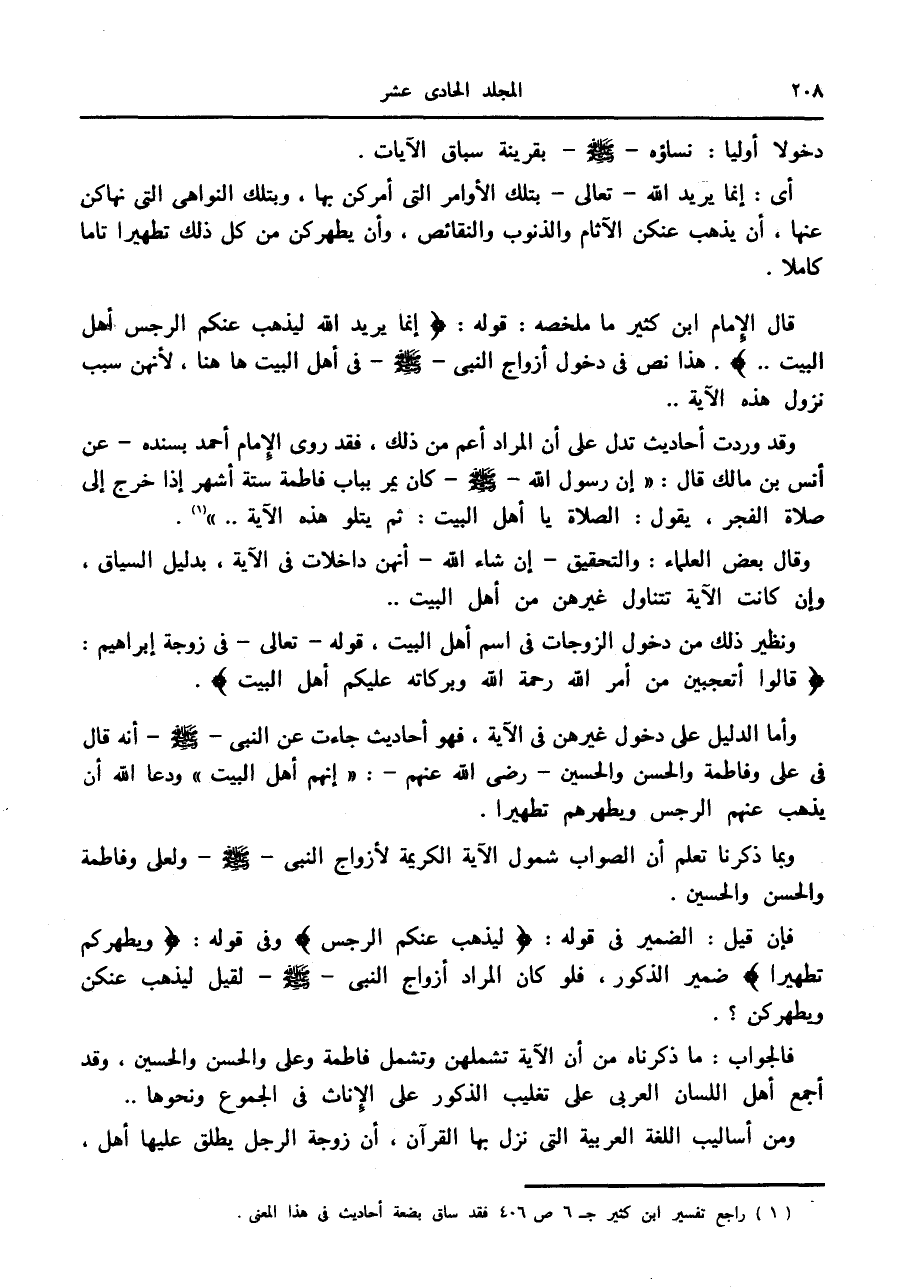 ٢٠٨ المجلد الحادى عشر
دخولا أوليا : نساؤه – ﷺ – بقرينة سباق الآيات .
أى : إنما يريد الله – تعالى – بتلك الأوامر التى أمركن بها ، وبتلك النواهى التى نهاكن
عنها ، أن يذهب عنكن الآثام والذنوب والنقائص ، وأن يطهركن من كل ذلك تطهيرا تاما
كاملا .
قال الإمام ابن كثير ما ملخصه : قوله : ﴿ إنما يريد الله ليذهب عنكم الرجس أهل
البيت .. ﴾ . هذا نص فى دخول أزواج النبى – ﷺ – فى أهل البيت ها هنا ، لأنهن سبب
نزول هذه الآية ..
وقد وردت أحاديث تدل على أن المراد أعم من ذلك ، فقد روى الإمام أحمد بسنده – عن
أنس بن مالك قال : « إن رسول الله – ﷺ – كان يمر بباب فاطمة ستة أشهر إذا خرج إلى
صلاة الفجر ، يقول : الصلاة يا أهل البيت : ثم يتلو هذه الآية .. »(١) .
وقال بعض العلماء : والتحقيق – إن شاء الله – أنهن داخلات فى الآية ، بدليل السياق ،
وإن كانت الآية تتناول غيرهن من أهل البيت ..
ونظير ذلك من دخول الزوجات فى اسم أهل البيت ، قوله – تعالى – فى زوجة إبراهيم :
﴿ قالوا أتعجبين من أمر الله رحمة الله وبركاته عليكم أهل البيت ﴾ .
وأما الدليل على دخول غيرهن فى الآية ، فهو أحاديث جاءت عن النبى – ﷺ – أنه قال
فى على وفاطمة والحسن والحسين – رضى الله عنهم – : « إنهم أهل البيت » ودعا الله أن
يذهب عنهم الرجس ويطهرهم تطهيرا .
وبما ذكرنا تعلم أن الصواب شمول الآية الكريمة لأزواج النبى – ﷺ – ولعلى وفاطمة
والحسن والحسين .
فإن قيل : الضمير فى قوله : ﴿ ليذهب عنكم الرجس ﴾ وفى قوله : ﴿ ويطهركم
تطهيرا ﴾ ضمير الذكور ، فلو كان المراد أزواج النبى – ﷺ – لقيل ليذهب عنكن
ويطهركن ؟ .
فالجواب : ما ذكرناه من أن الآية تشملهن وتشمل فاطمة وعلى والحسن والحسين ، وقد
أجمع أهل اللسان العربى على تغليب الذكور على الإناث فى الجموع ونحوها ..
ومن أساليب اللغة العربية التى نزل بها القرآن ، أن زوجة الرجل يطلق عليها أهل ،
( ١ ) راجع تفسير ابن كثير جـ ٦ ص ٤٠٦ فقد ساق بضعة أحاديث فى هذا المعنى .